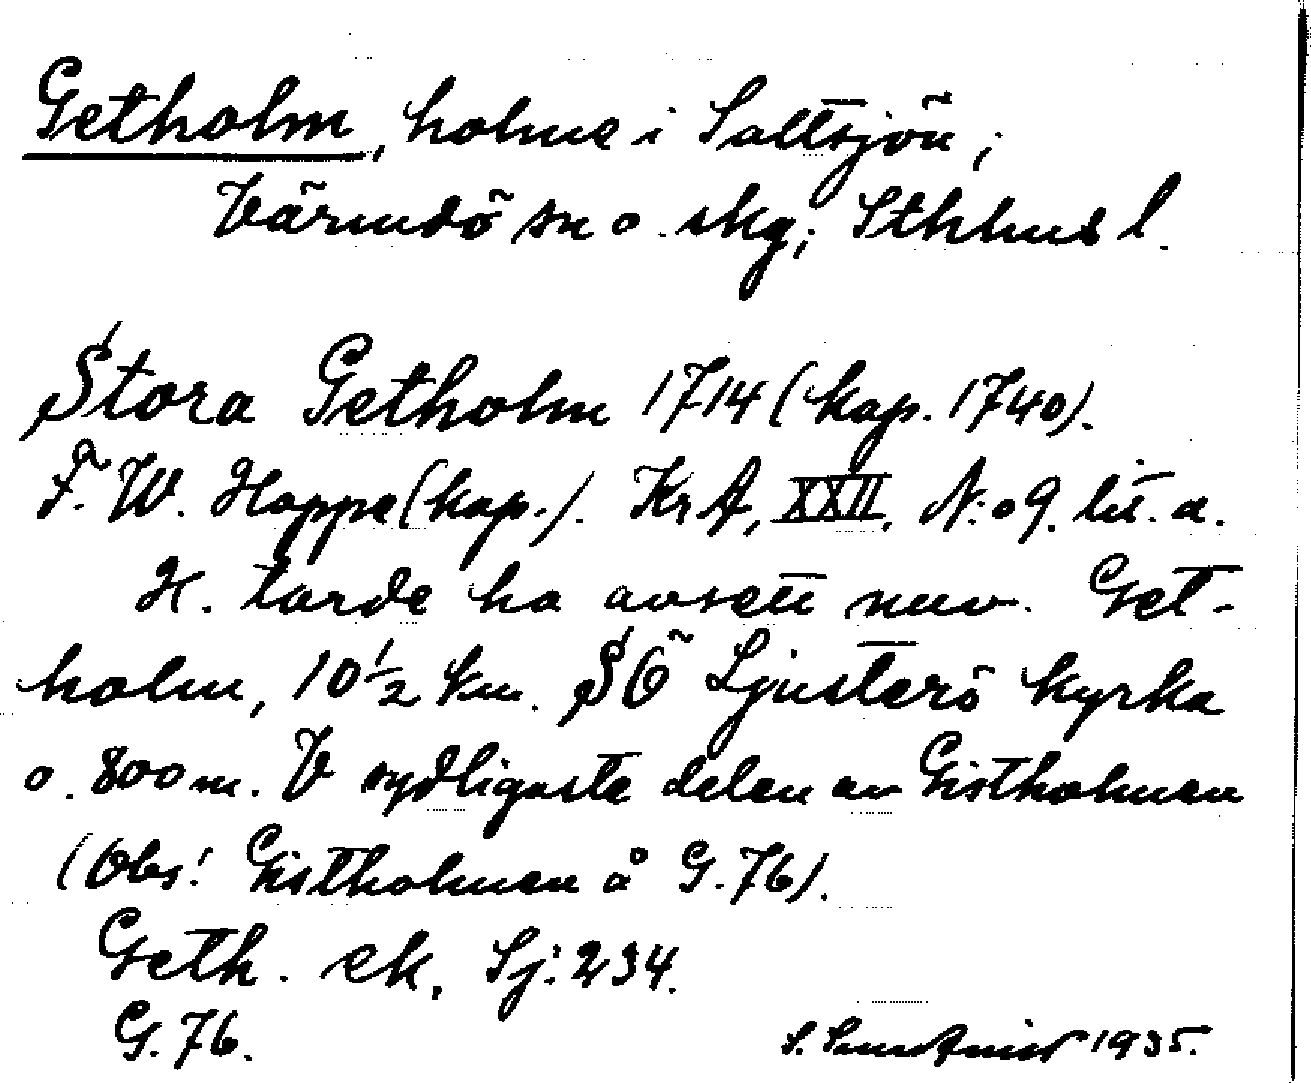 Getholm, holme i Saltsjön,
Värmdö sn o. skg, Sthlms l.
Stora Getholm 1714 (kap. 1740).
F. W. Hoppe (kap.). KrA, XXII, N:o 9. lit. a.
H. torde ha avsett nuv. Get-
holm, 10 1/2 km. SÖ Ljusterö kyrka
o. 800 m. V sydligaste delen av Gistholmen
(Obs! Gistholmen å G. 76).
Geth. ek. Sj: 234.
G. 76.
S. 1935.